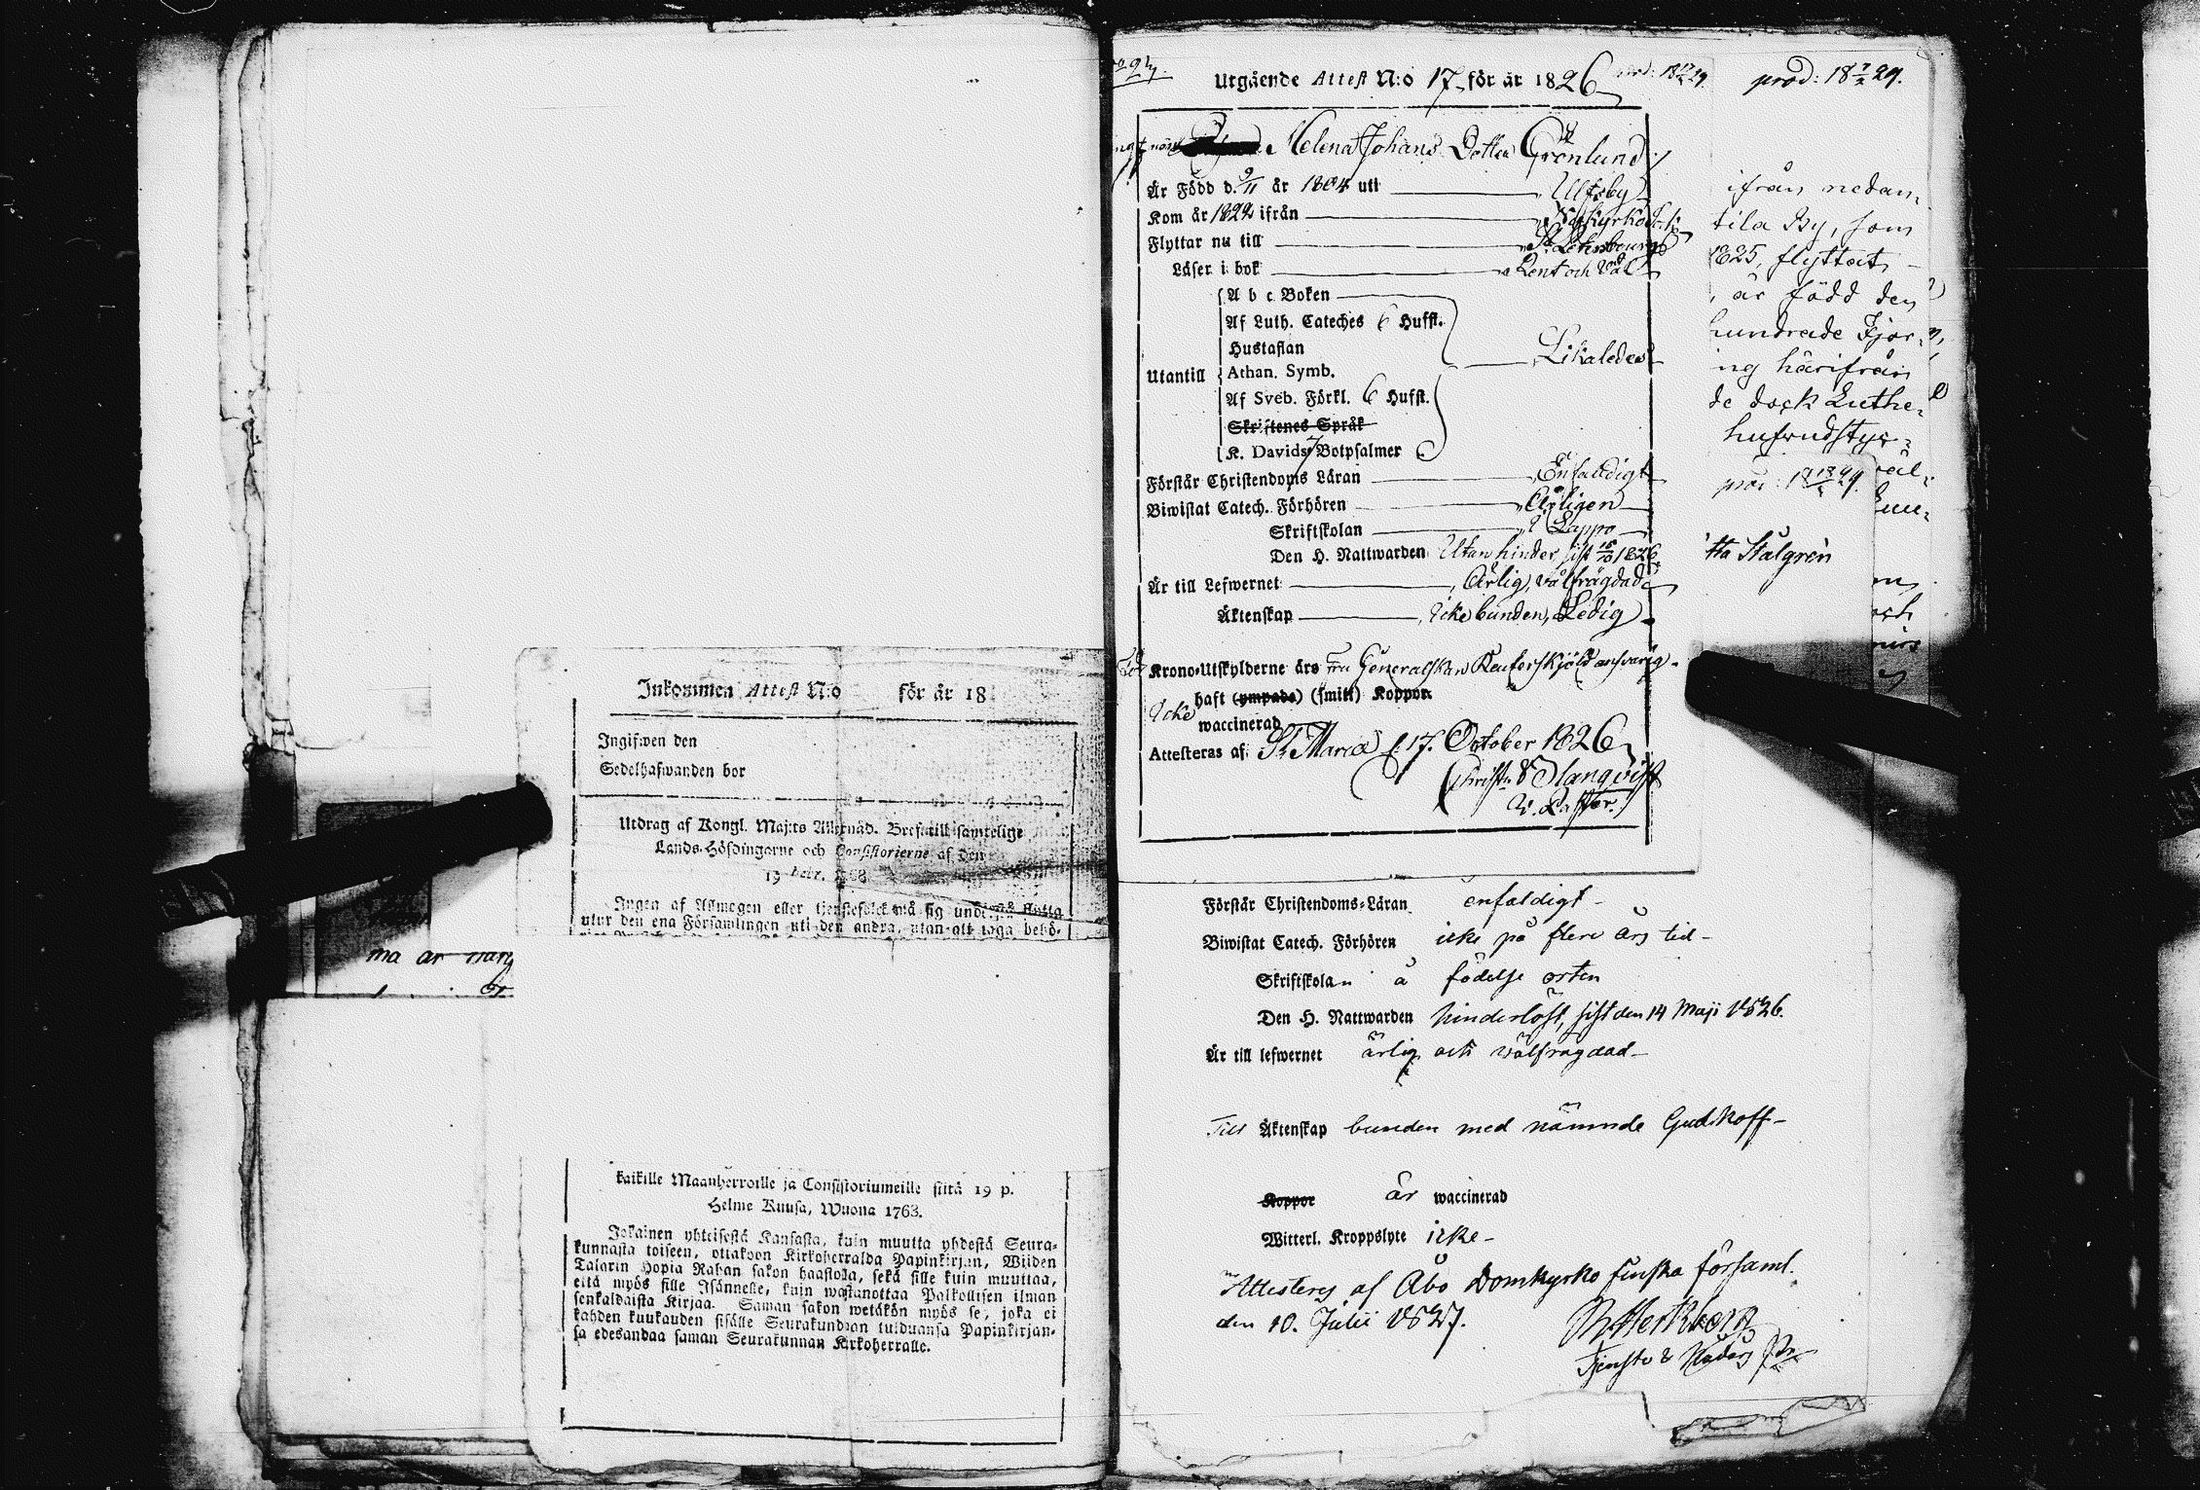 Inkommen Attest N:o för år 18
Ingifwen den
Sedelhafwanden bor
Utdrag af Kongl. Maj:ts Allernåd. Bref till samtelige
Lands-Höfdingarne och Consistorierne af den
19 Febr.
Ingen af Allmogen eller tjenstefolck må sig flytta
utur den ena Församlingen uti den andra, utan att taga behö-
ma är
kaikille Maanherroille ja Consistoriumeille siitä 19 p.
Helme Kuusa, Wuona 1763.
Jokainen yhteisestä Kansasta, kuin muutta yhdestä Seura-
kunnasta toiseen, ottakoon Kirkoherralda Papinkirjan, Wiiden
Talarin Hopia Rahan sakon haastolla, sekä sille kuin muuttaa,
että myös sille Isännelle, kuin wastanottaa Palkollisen ilman
senkaldaista Kirjaa. Saman sakon wetäkön myös se, joka ei
kahden kuukauden sisälle Seurakundaan tulduansa Papinkirjan-
sa edesandaa saman Seurakunnan Kirkoherralle.
Utgående Attest N:o 17 för år 1826
prod: 18 7/2 29.
Helena Johans Dotter Grönlund
Är Född d. 9/11 år 1804 uti Ulfsby
Kom år 1822 ifrån
Flyttar nu till St. Petersbourg
Läser i bok Rent och väl
A b c Boken
Af Luth. Cateches 6 Hufst.
Hustaflan
Likaledes
Utantill Athan. Symb.
Af Sveb. Förkl. 6 Hufst.
Skriftenes Språk
K. Davids 7 Botpsalmer
Förstår Christendoms Läran Enfaldigt
Biwistat Catech. Förhören Årligen
Skriftskolan i Lappo
Den H. Nattwarden Utan hinder, sist 15/10 1826
Är till Lefwernet Ärlig, välfrägdad
Äktenskap Icke bunden, Ledig
Krono-Utskylderne års Fru Generalskan Reuterskjöld answarig
haft (ympade) (smitt) Koppor.
Icke
waccinerad
Attesteras af St Mariæ d. 17. October 1826
Christ. Blanqvist
V. Pastor.
ifrån nedan
tila By, som
1825, flyttat
är född den
hundrade Fjor
ing härifrån
de dock Luthe
hufvudstyc
Stålgren
Förstår Christendoms-Läran enfaldigt
Biwistat Catech. Förhören icke på flere års tid
Skriftskolan å födelse orten
Den H. Nattwarden hinderlöst, sist den 14 Maji 1826.
Är till lefwernet ärlig och wälfrägdad
Till Äktenskap bunden med nämnde Gudskoff
Koppor är waccinerad
Witterl. Kroppslyte icke
Attesteras af Åbo Domkyrko finska församl.
den 10. Julii 1827.